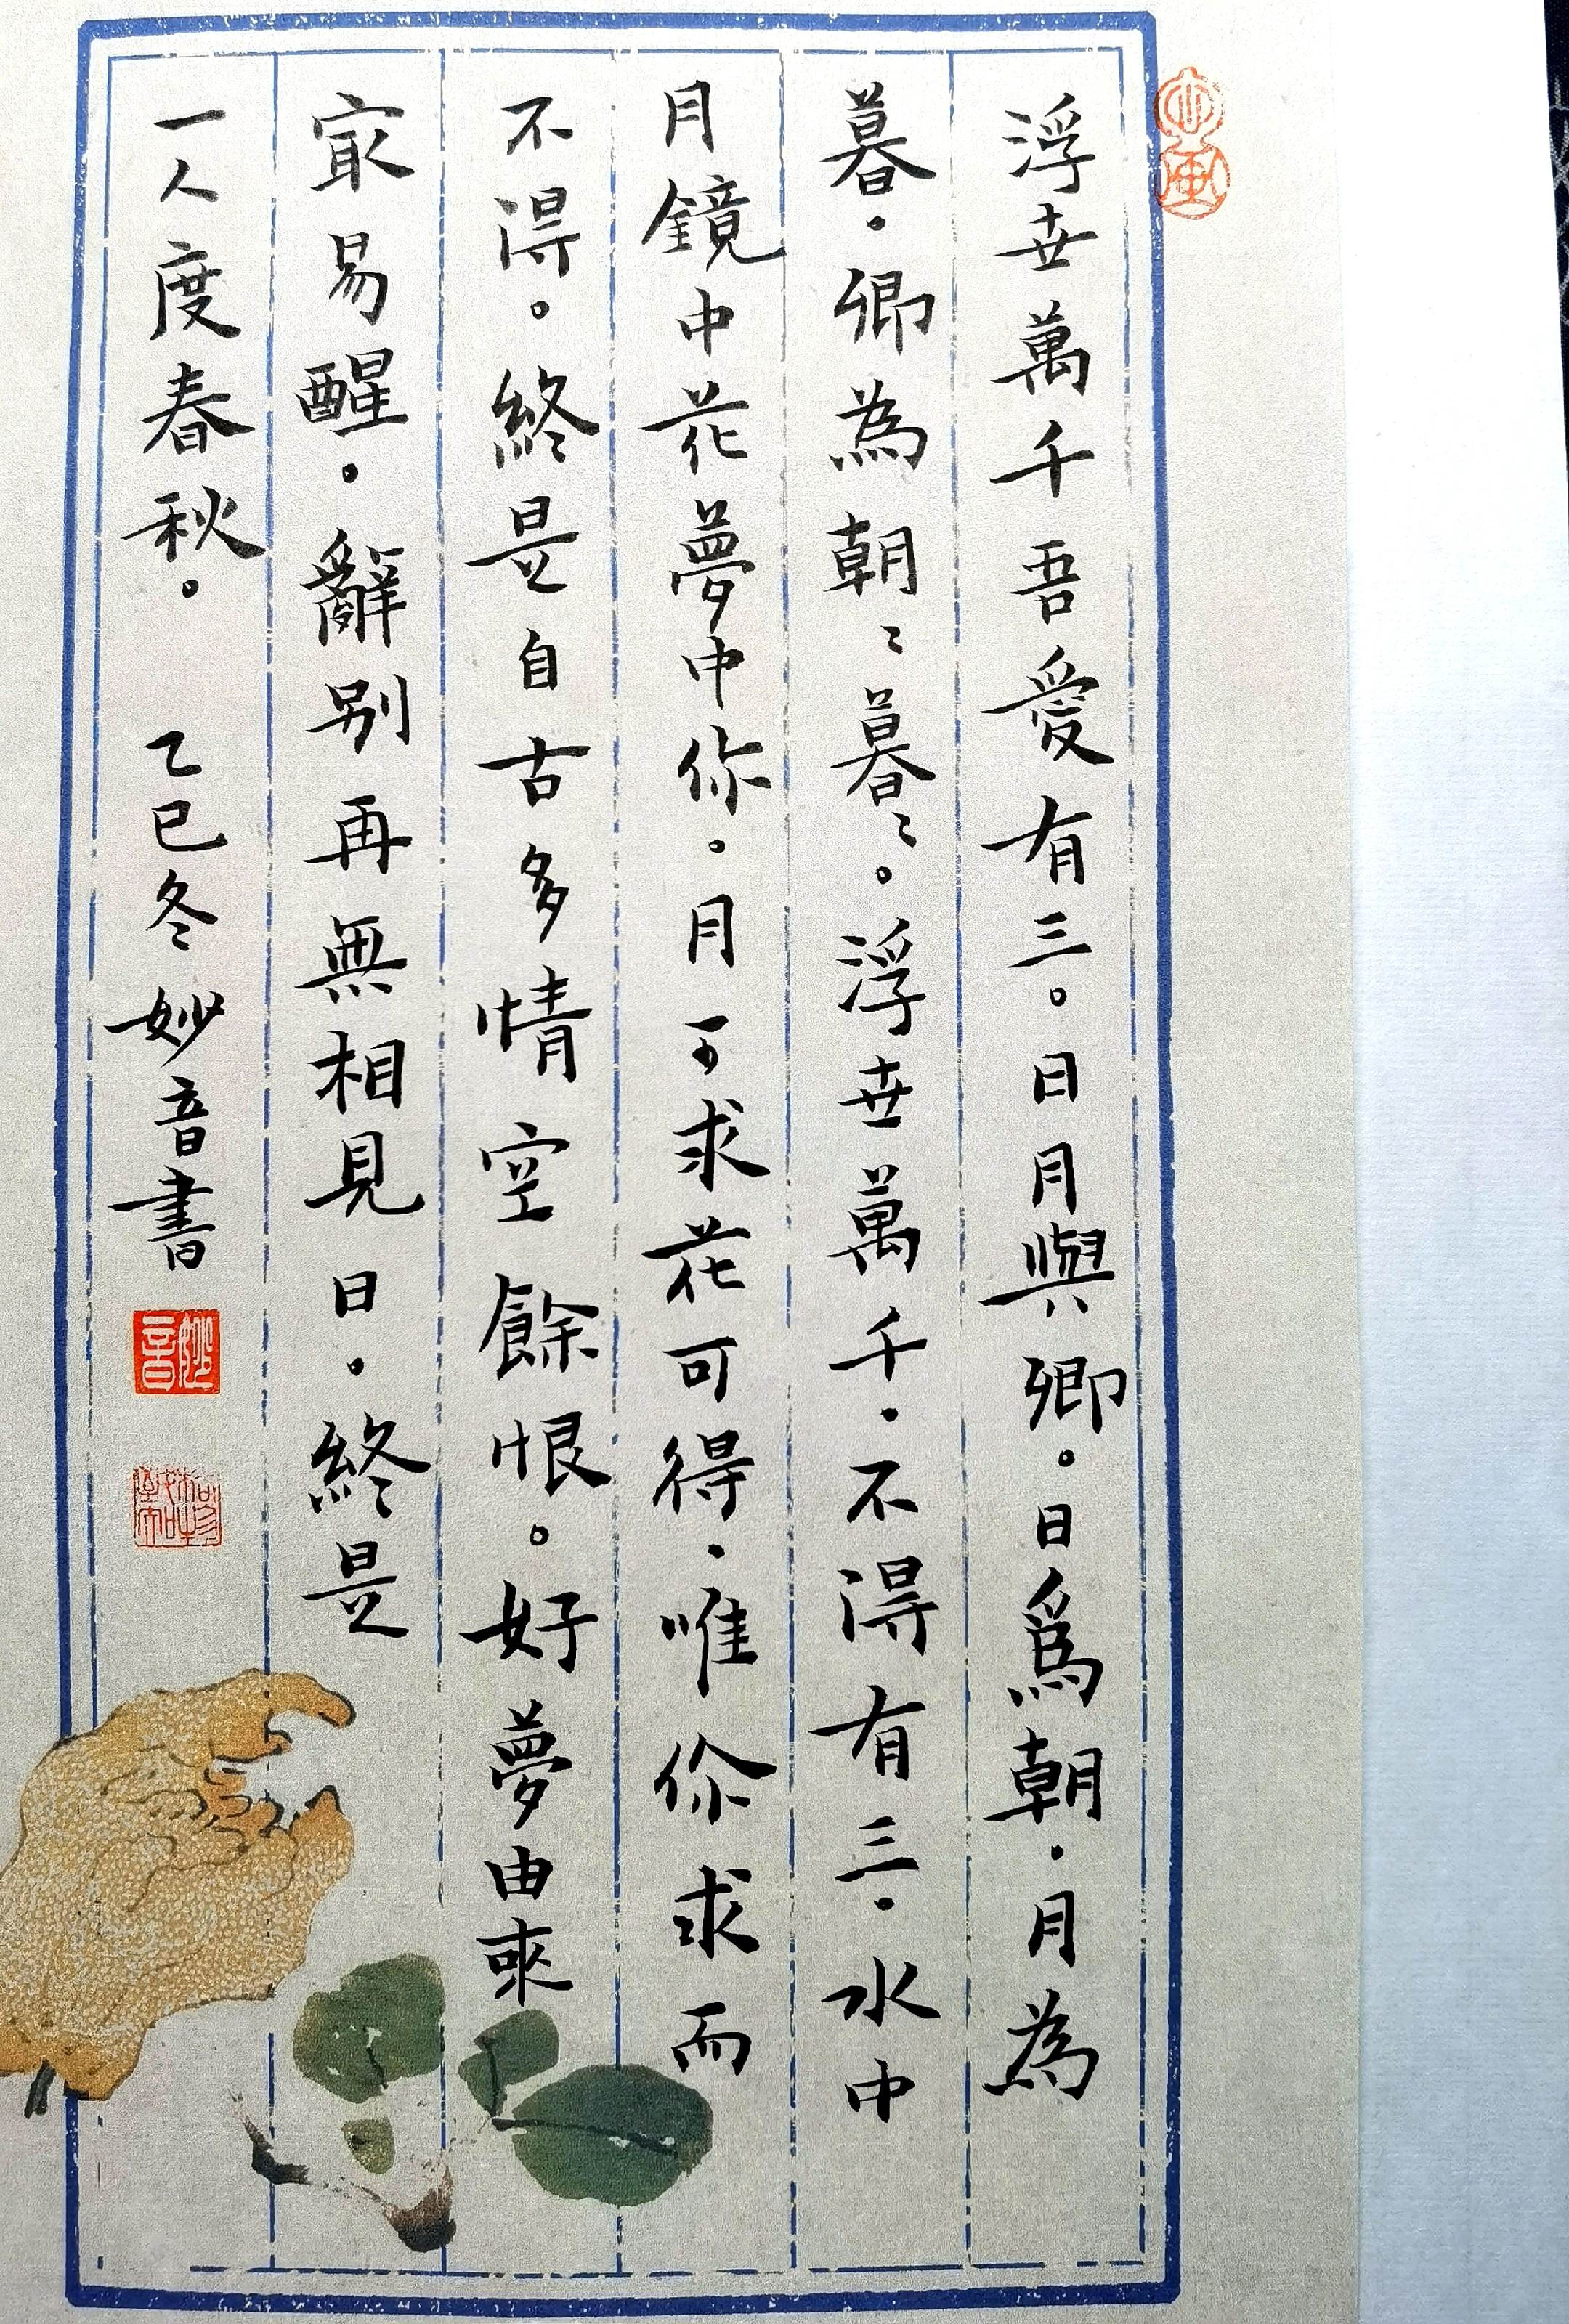 浮世萬千吾愛有三。日月與卿。日爲朝.月為
暮.卿為朝〻暮〻。浮世萬千.不得有三.水中
月鏡中花夢中你。月可求花可得.唯你求而
不得。終是自古多情空餘恨。好夢由來
冣易醒.辭別再無相見日.終是
一人度春秋。 乙巳冬 妙音書
妙音